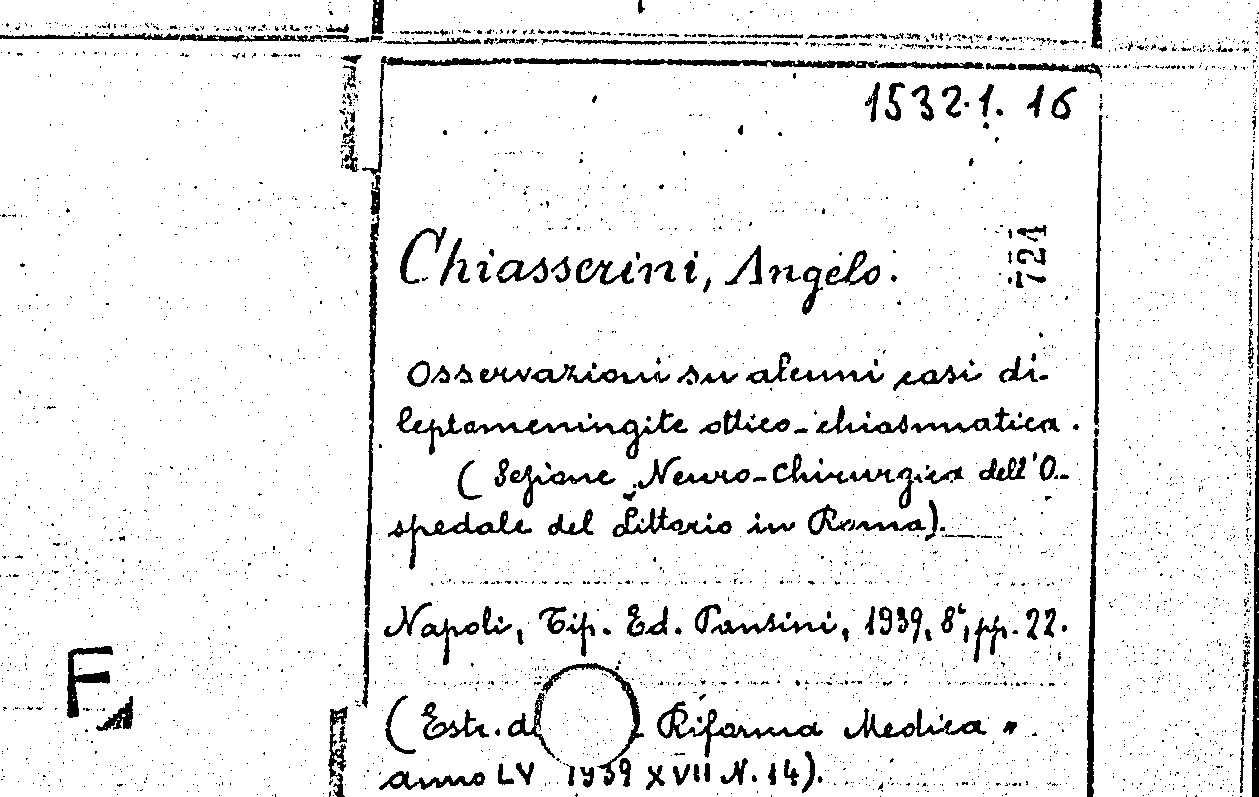 1532.1. 16
724
Chiasserini, Angelo.
Osservazioni su alcuni casi di
leptomeningite ottico-chiasmatica.
(Sezione Neuro-Chirurgica dell'O-
spedale del Littorio in Roma).
Napoli, Tip. Ed. Pansini, 1939, 8°, pp. 22.
(Estr. d Riforma Medica".
anno LV 1939 XVII N. 14).
F